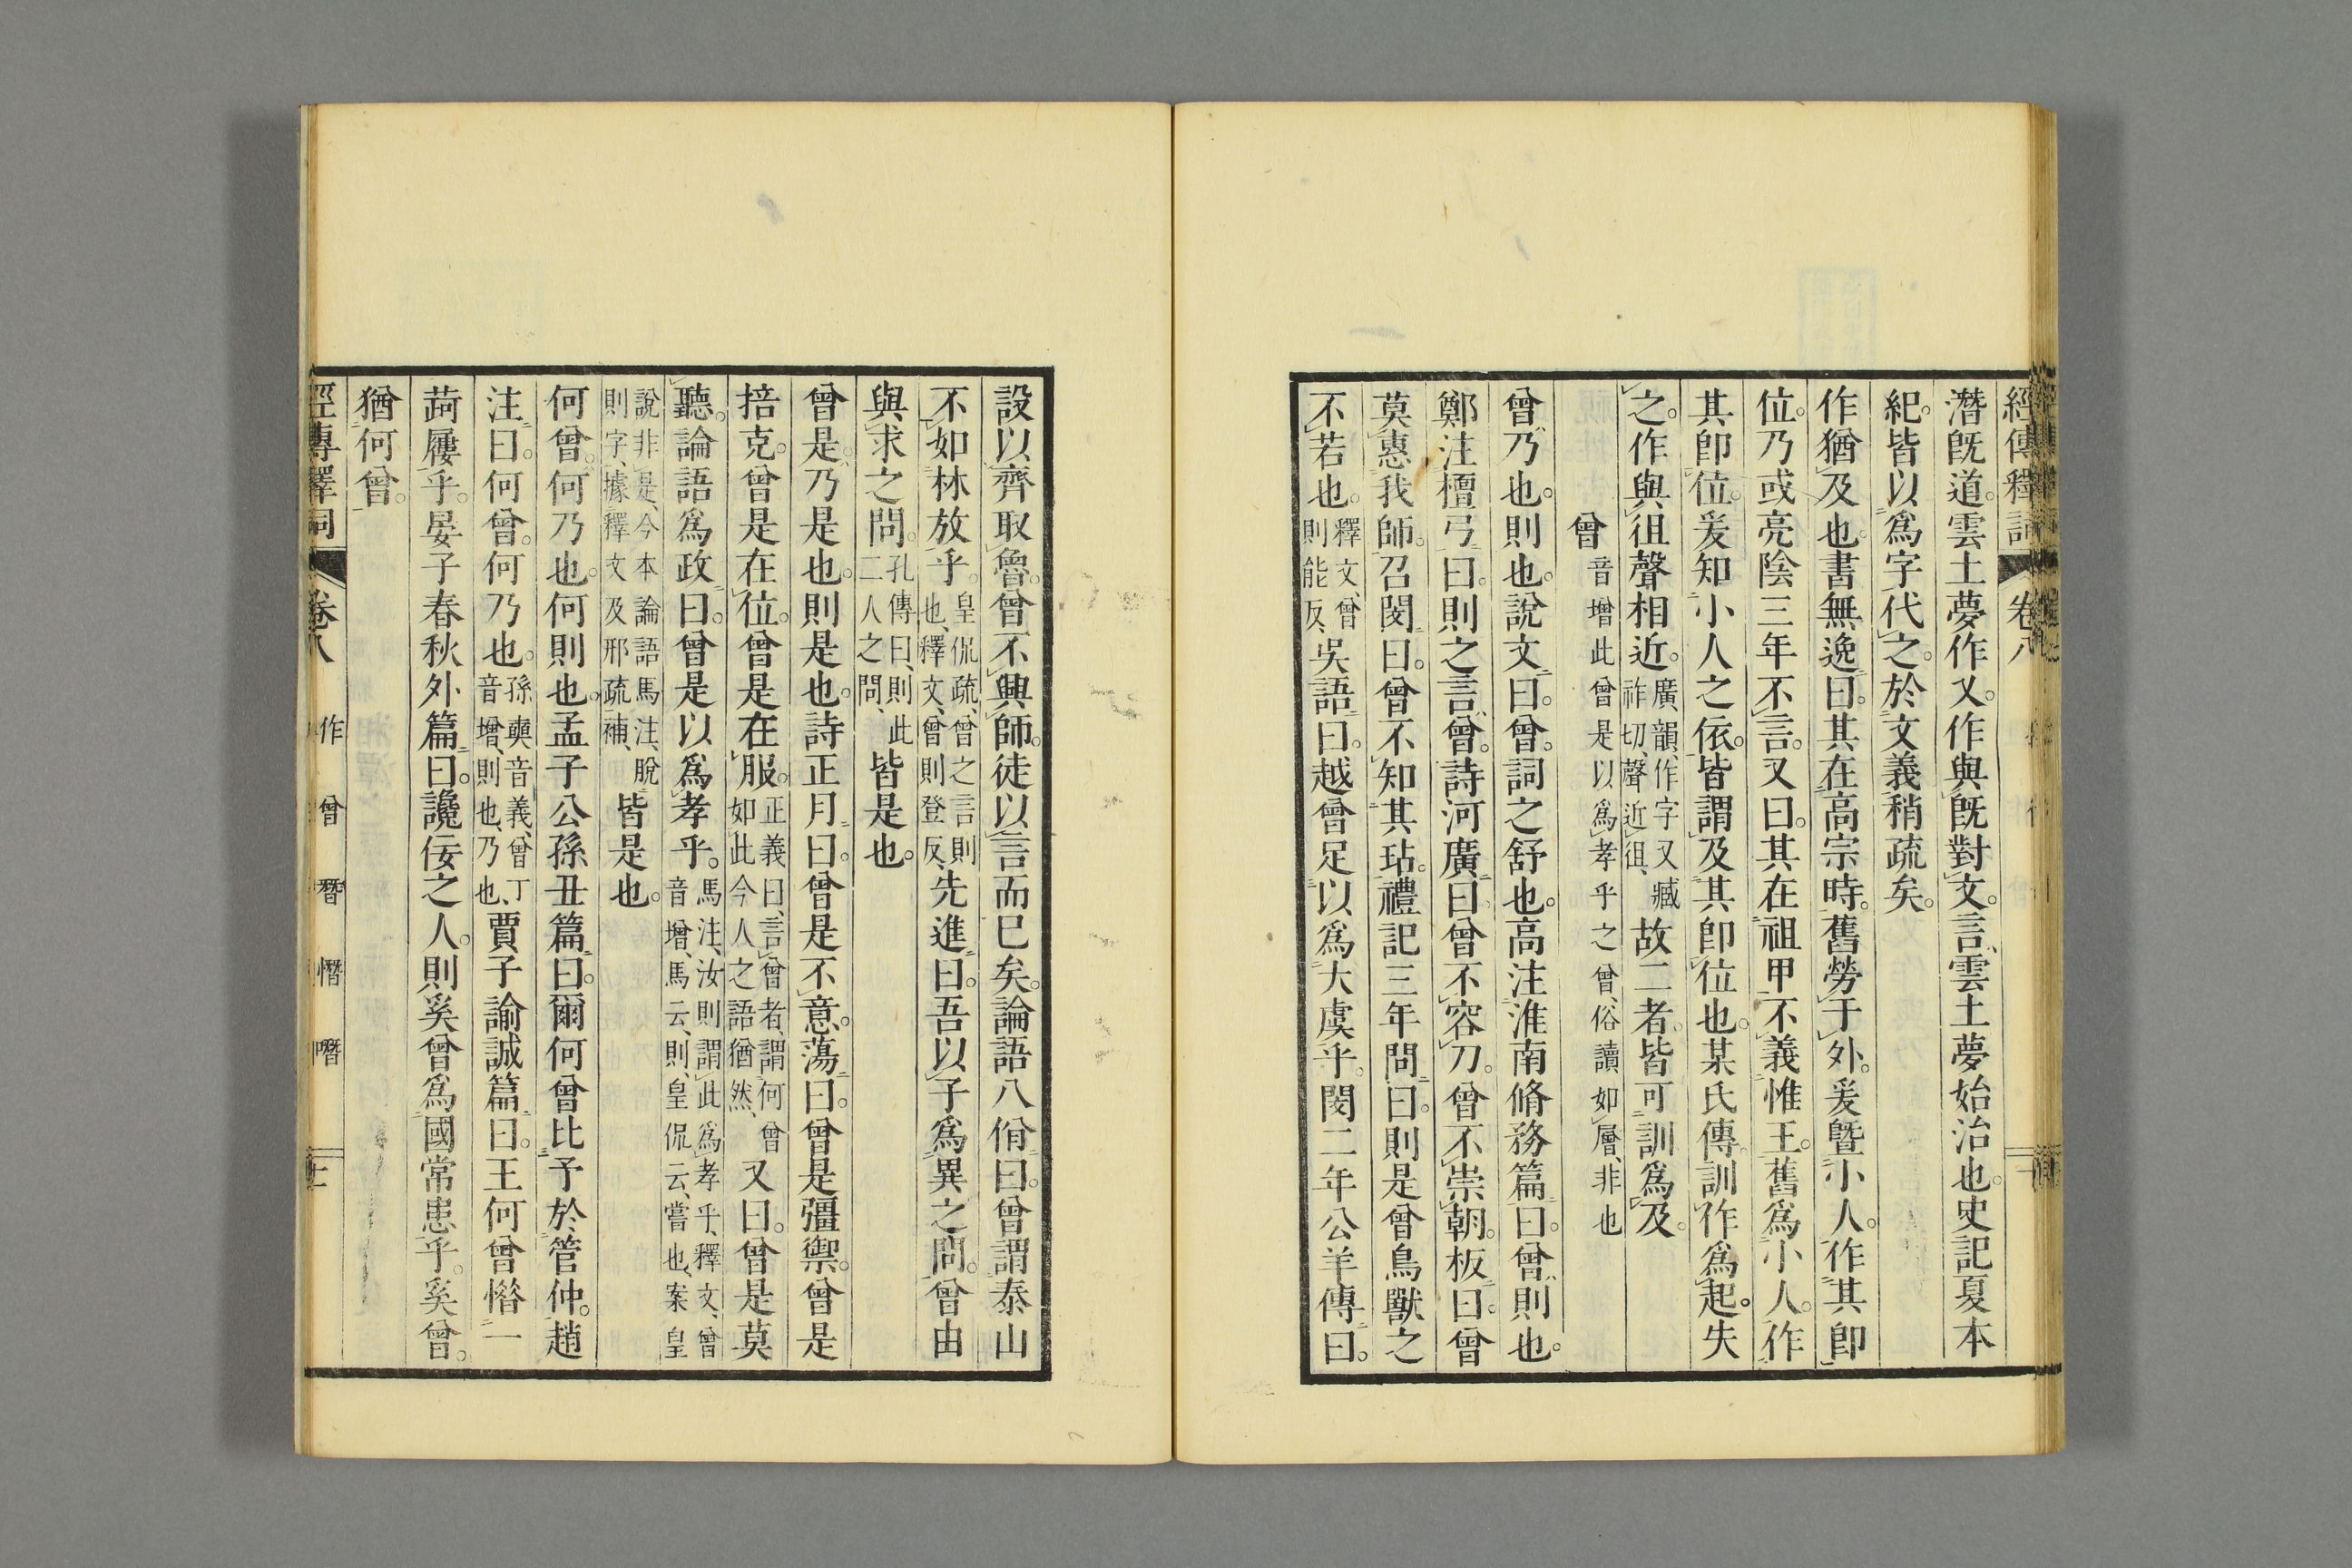 經傳釋詞 卷八
潛旣道。雲土夢作乂。作與旣對文。言雲土夢始治也。史記夏本
紀。皆以爲字代之。於文義稍疏矣。
作猶及也。書無逸曰。其在高宗時。舊勞于外。爰曁小人。作其卽
位。乃或亮陰三年不言。又曰。其在祖甲。不義惟王。舊爲小人。作
其卽位。爰知小人之依。皆謂及其卽位也。某氏傳訓作爲起。失
之。作與徂聲相近。廣韻、作字又臧祚切、聲近徂、故二者皆可訓爲及。
曾 音增此曾是以爲孝乎之曾、俗讀如層、非也
曾。乃也。則也。說文曰。曾。詞之舒也。高注淮南脩務篇曰。曾。則也。
鄭注檀弓曰。則之言曾。詩河廣曰。曾不容刀。曾不崇朝。板曰。曾
莫惠我師。召閔曰。曾不知其玷。禮記三年問曰。則是曾鳥獸之
不若也。釋文、曾則能反、吳語曰。越曾足以爲大虞乎。閔二年公羊傳曰。
設以齊取魯。曾不興師。徒以言而已矣。論語八佾曰。曾謂泰山
不如林放乎。皇侃疏、曾之言則也、釋文、曾則登反、先進曰。吾以子爲異之問。曾由
與求之問。孔傳曰、則此二人之問、皆是也。
曾是。乃是也。則是也。詩正月曰。曾是不意。蕩曰。曾是彊禦。曾是
掊克。曾是在位。曾是在服。正義曰、言曾者、謂何曾如此今人之語猶然、又曰。曾是莫
聽。論語爲政曰。曾是以爲孝乎。馬注、汝則謂此爲孝乎、釋文、曾音增、馬云、則、皇侃云、嘗也、案皇
說非是、今本論語馬注、脫則字、據釋文及邢疏補、皆是也。
何曾。何乃也。何則也。孟子公孫丑篇曰。爾何曾比予於管仲。趙
注曰。何曾。何乃也。孫奭音義、曾丁音增、則也、乃也、賈子諭誠篇曰。王何曾惜一
踦屨乎。晏子春秋外篇曰。讒佞之人。則奚曾爲國常患乎。奚曾。
猶何曾。
經傳釋詞 卷八 作 曾 朁 憯 噆